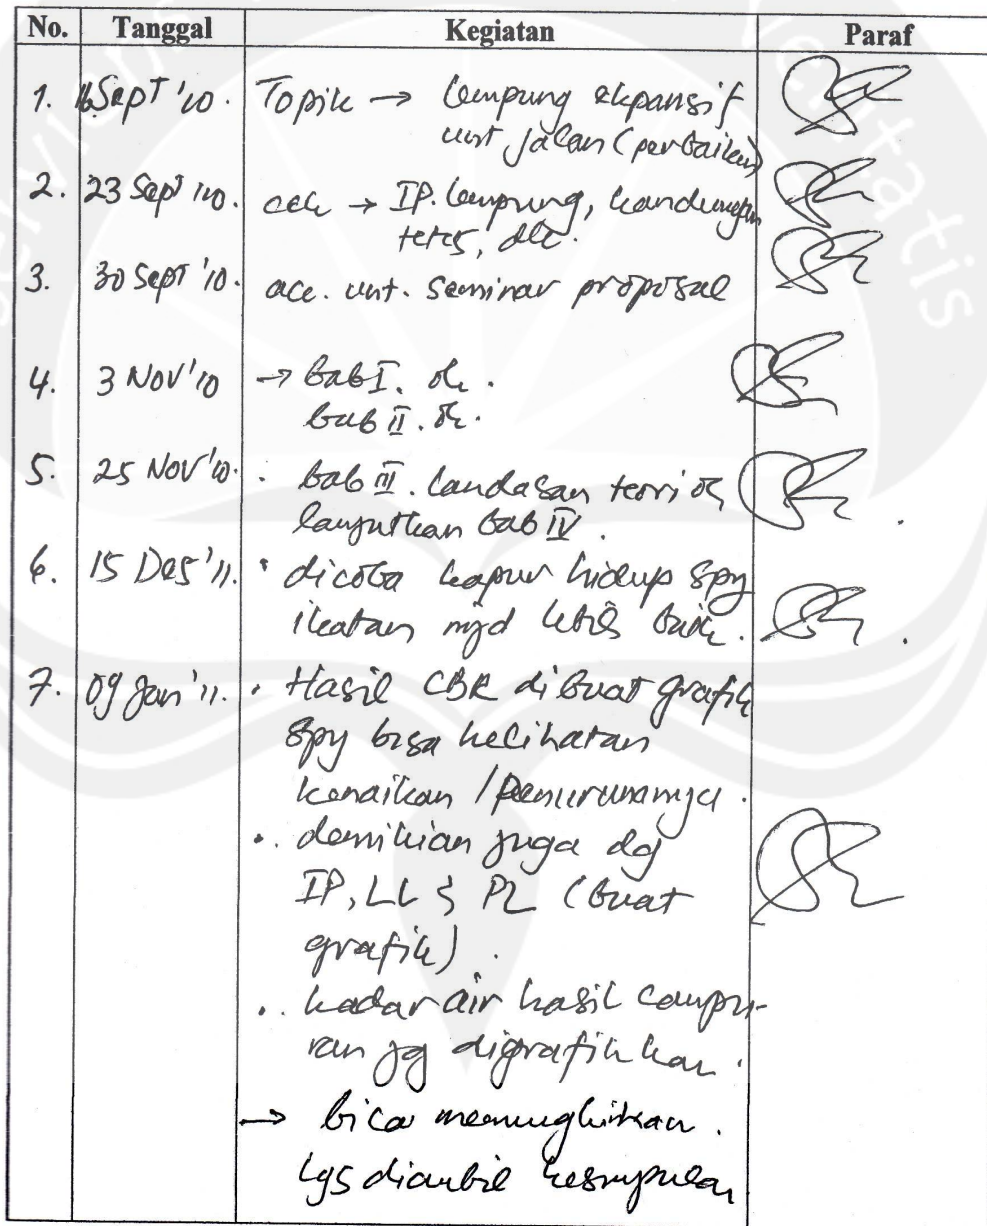 No. Tanggal Kegiatan Paraf
1. 16 Sept '10. Topik → lempung ekpansif
unt jalan (perbaikan)
2. 23 Sept '10. cek → IP. lempung, kandungan
tetes, dll.
3. 30 Sept '10. acc. unt. seminar proposal
4. 3 Nov '10 → bab I. ok.
bab II. ok.
5. 25 Nov '10. . bab III. landasan teori ok
lanjutkan bab IV.
6. 15 Des '11. . dicoba kapur hidup spy
ikatan mjd lebih baik.
7. 09 Jan '11. . Hasil CBR dibuat grafik
spy bisa kelihatan
kenaikan / penurunannya.
. demikian juga dg
IP, LL & PL (buat
grafik).
. kadar air hasil campu-
ran jg digrafikkan.
→ bica memungkinkan.
lgs diambil kesimpulan